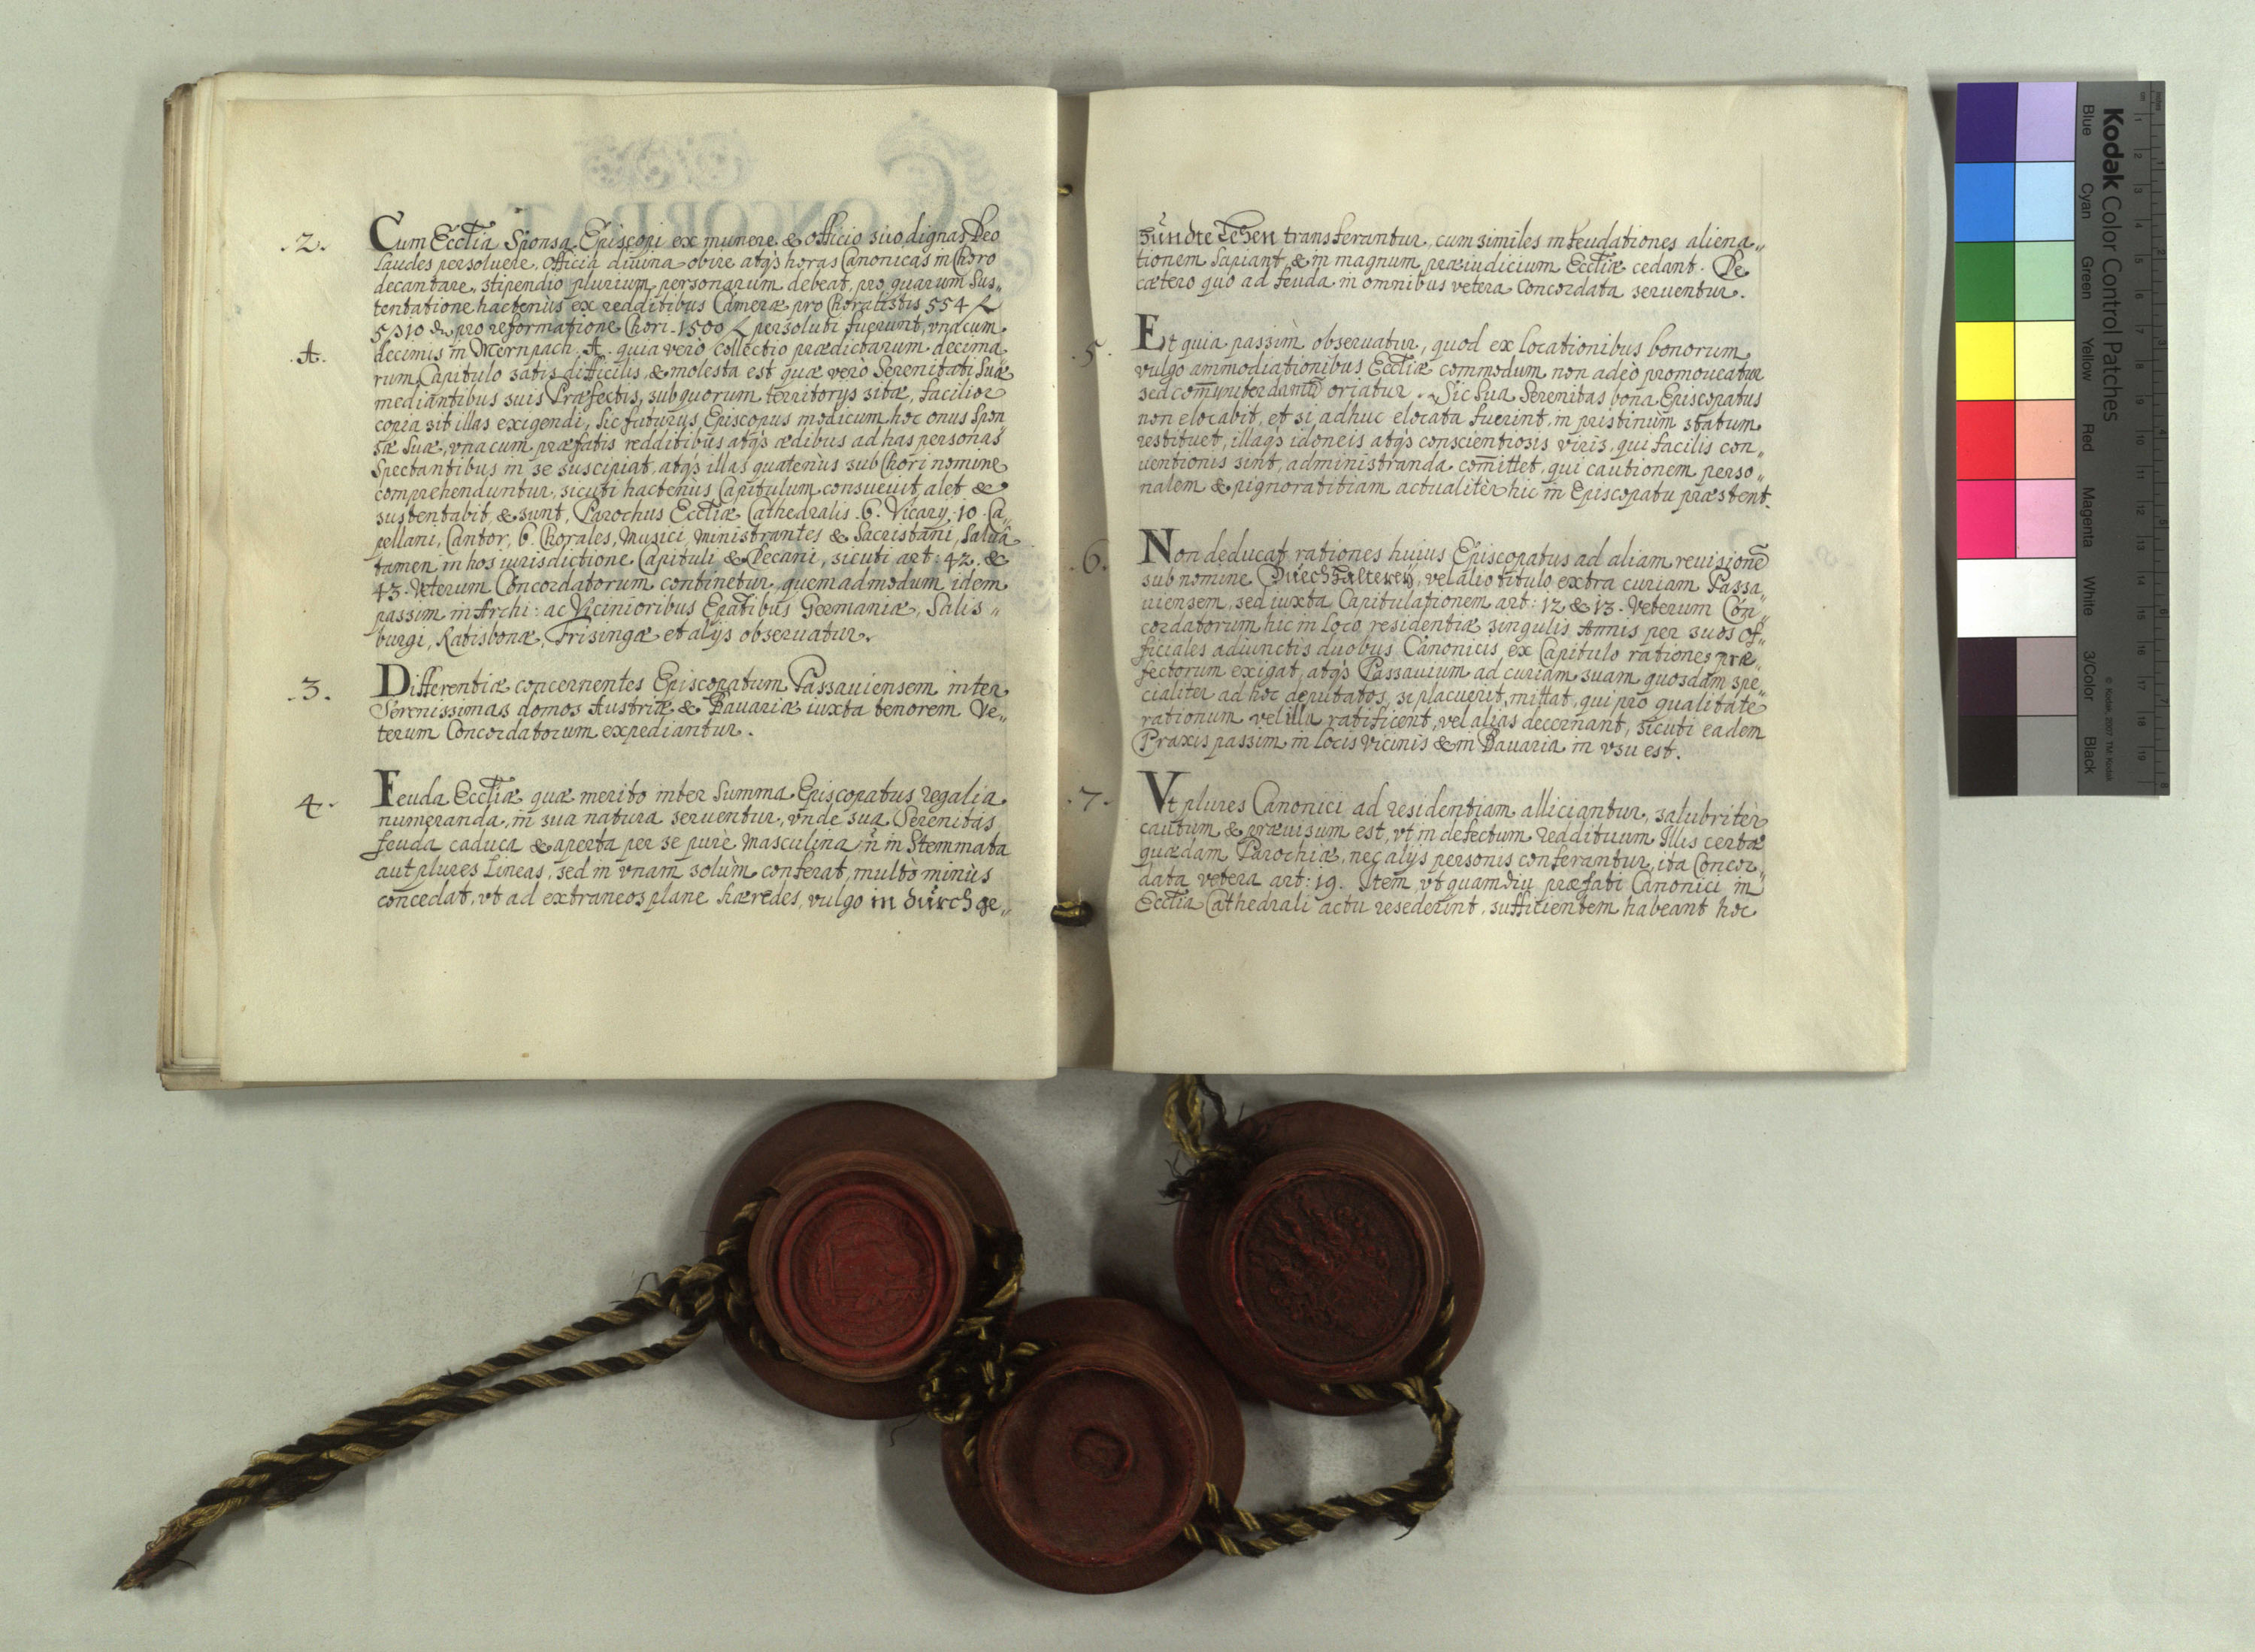 .2. Cum Ecctia Sponsa Episcopi ex munere & officio suo dignas Deo
laudes persoluere, officia diuina obire atqs horas Canonicas in Choro
decantare, stipendio plurium personarum debeat, pro quarum sus„
tentatione hactenùs ex redditibus Cameræ pro Choralistis 554
pro reformatione Chori 1500 persoluti fuerunt, vnacum
.A. decimis in Mernpach. A. quia verò collectio prædictarum decima„
rum Capitulo satis difficilis, & molesta est quæ verò Serenitati Suæ
mediantibus suis Præfectis, sub quorum territorys sitæ, facilior
copia sit illas exigendi, sic futurus Episcopus modicum hoc onus spon
sæ suæ, vnacum præfatis redditibus atqs ædibus ad has personas
spectantibus in se suscipiat, atqs illas quatenùs sub Chori nomine
comprehenduntur, sicuti hactenùs Capitulum consueuit, alet &
sustentabit, & sunt, Parochus Ecctiæ Cathedralis .6. Vicary .10. Ca„
pellani, Cantor, 6. Chorales, Musici, ministrantes & Sacristani, salua
tamen in hos iurisdictione Capituli & Decani, sicuti art: 42. &
43. Veterum Concordatorum continetur, quemadmodum idem
passim in Archi: ac Vicinioribus Epatibus Germaniæ, Salis„
burgi, Ratisbonæ, Frisingæ et alijs obseruatur.
.3. Differentiæ concernentes Episcopatum Passauiensem inter
Serenissimas domos Austriæ & Bauariæ iuxta tenorem Ve„
terum Concordatorum expediantur.
4. Feuda Ecctiæ quæ merito inter summa Episcopatus regalia
numeranda, in sua natura seruentur, vnde sua Serenitas
feuda caduca & aperta per se purè masculina, ñ in Stemmata
aut plures Lineas, sed in vnam solùm conferat, multò minùs
concedat, vt ad extraneos planè hæredes, vulgo in dürchge„
hündte Lehen transferantur, cum similes infeudationes aliena„
tionem sapiant, & in magnum præiudicium Ecctiæ cedant. De
cætero quo ad feuda in omnibus vetera Concordata seruentur.
.5. Et quia passìm obseruatur, quod ex locationibus bonorum
vulgo ammodiationibus Ecctiæ commodum non adeò promoueatur
sed comuniter damnũ oriatur. Sic Sua Serenitas bona Episcopatus
non elocabit, et si adhuc elocata fuerint, in pristinum statum
restituet, illaqs idoneis atqs conscientiosis viris, qui facilis con„
uentionis sint, administranda comittet, qui cautionem perso„
nalem & pignoratitiam actualitèr hic in Episcopatu præstent.
.6. Non deducat rationes huius Episcopatus ad aliam reuisionẽ
sub nomine Dürchhalterey, vel alio titulo extra curiam Passa„
uiensem, sed iuxta Capitulationem art: 12 & 13. Veterum Con„
cordatorum hic in loco residentiæ singulis Annis per suos Of„
ficiales adiunctis duobus Canonicis ex Capitulo rationes præ„
fectorum exigat, atqs Passauium ad curiam suam quosdam spe„
cialiter ad hoc deputatos, si placuerit, mittat, qui pro qualitate
rationum vel illa ratificent, vel alias decernant, sicuti eadem
Praxis passim in locis vicinis & in Bauaria in vsu est.
.7. Vt plures Canonici ad residentiam alliciantur, salubritèr
cautum & præuisum est, vt in defectum reddituum Illis certæ
quædam Parochiæ, nec alijs personis conferantur, ita Concor„
data vetera art: 19. Item, vt quamdiu præfati Canonici in
Ecctia Cathedrali actu resederint, sufficientem habeant hoc
Kodak Color Control Patches
Blue Cyan Green Yellow Red Magenta White 3/Color Black
© Kodak, 2007 TM: Kodak